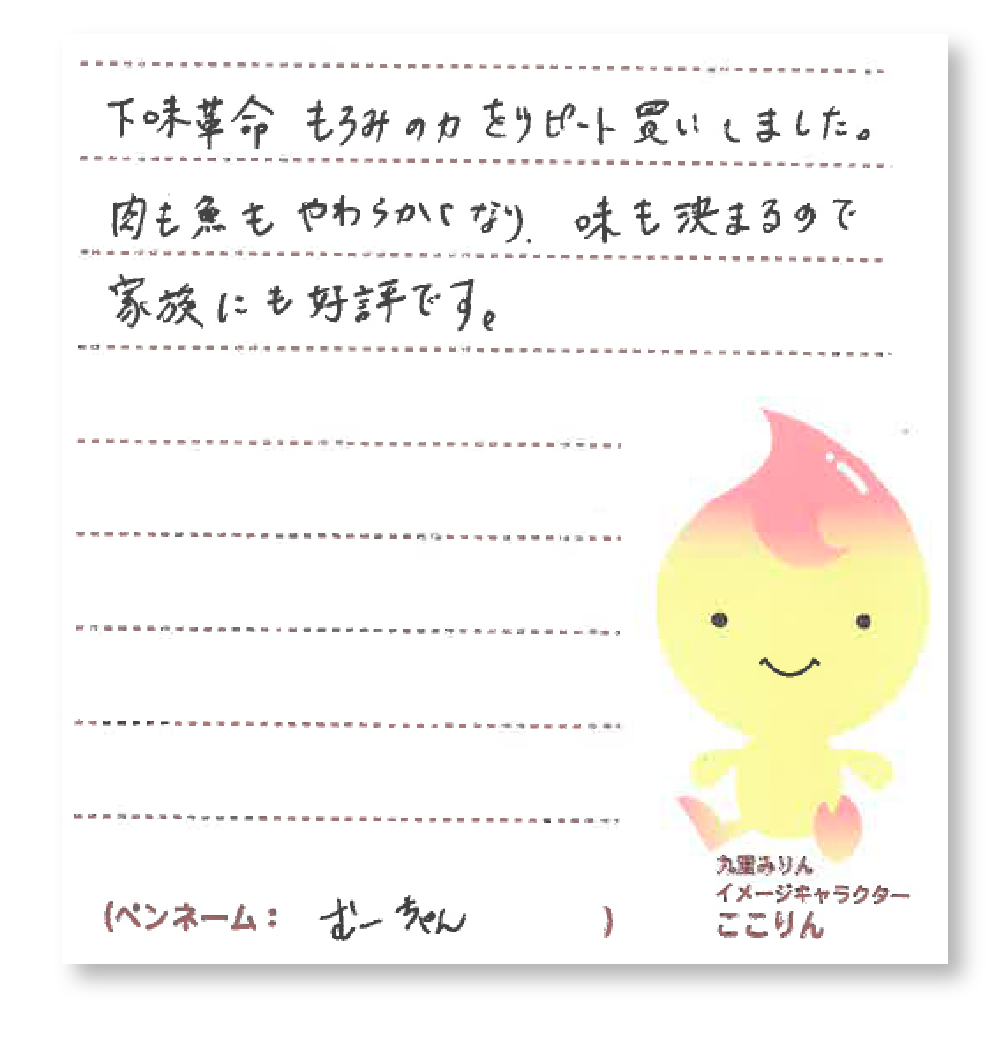 下味革命 もろみの力 をリピート買いしました。
肉も魚も やわらかくなり、味も決まるので
家族にも好評です。
(ペンネーム: むーちゃん )
九重みりん
イメージキャラクター
ここりん